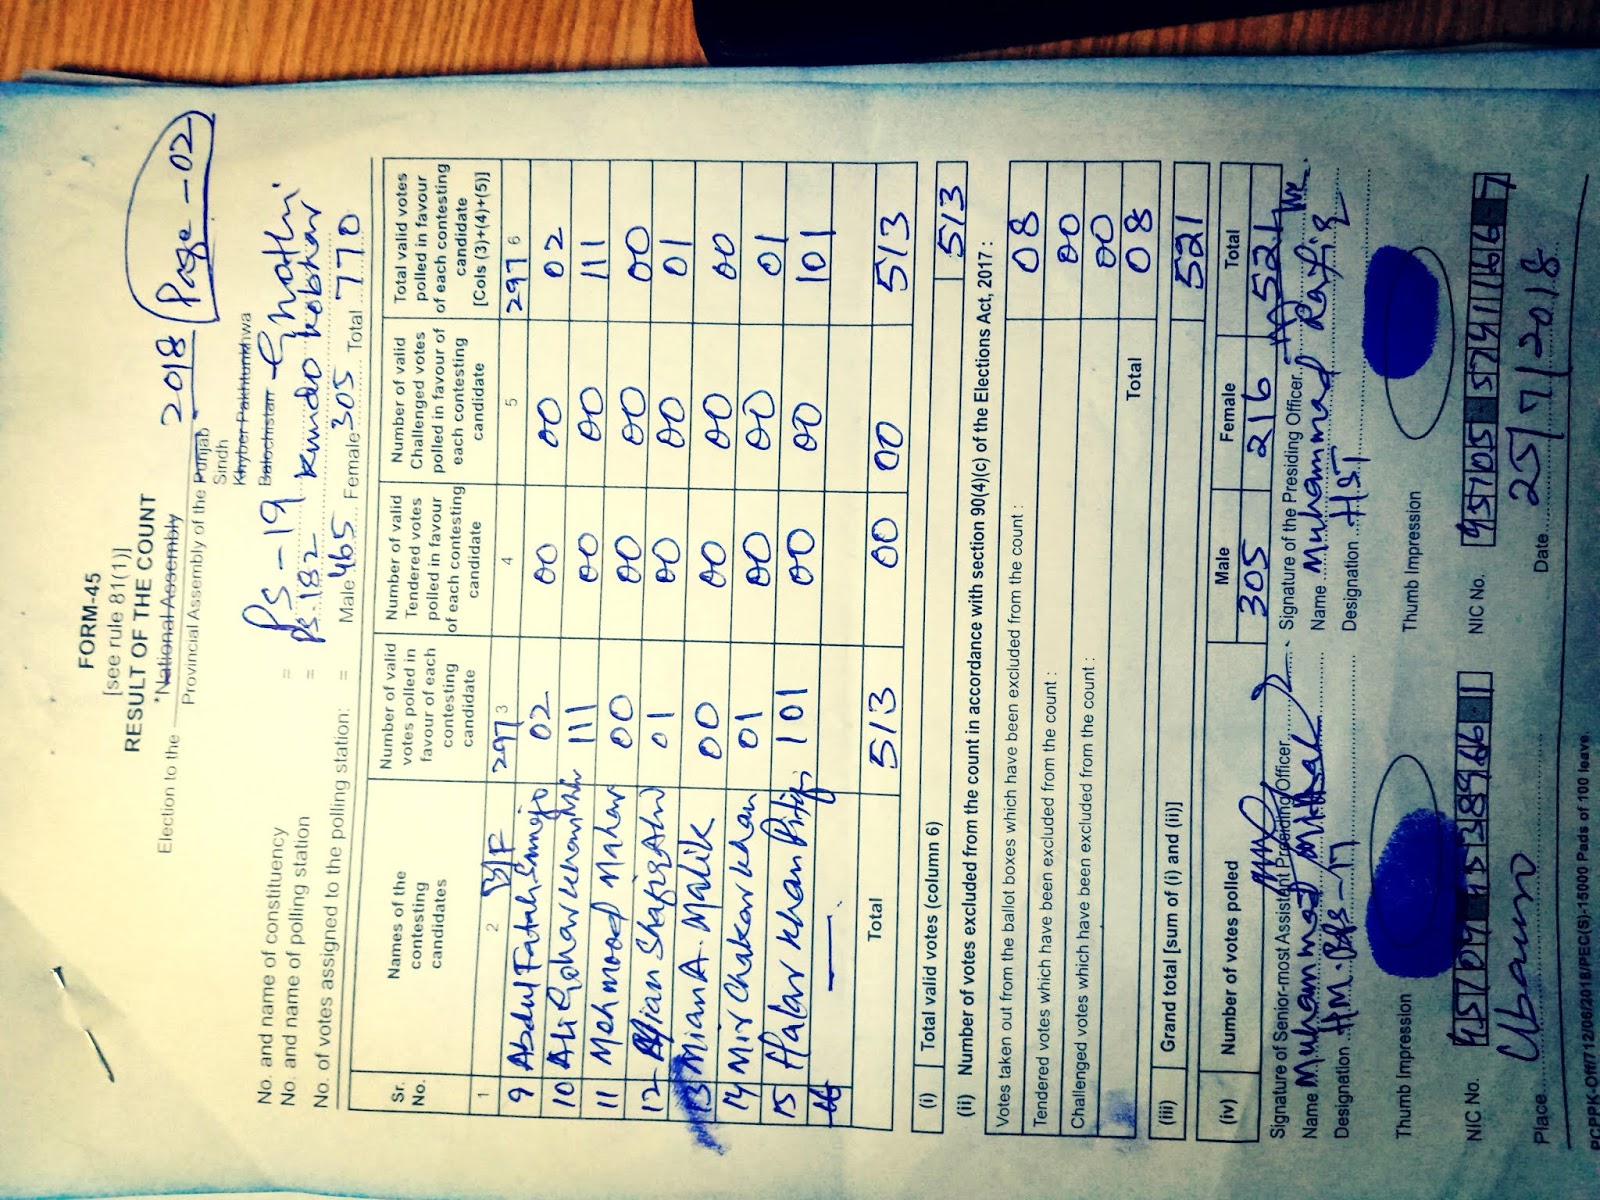 FORM-45
[see rule 81(1)]
RESULT OF THE COUNT
*National Assembly
Election to the 2018 Page - 02
Provincial Assembly of the Punjab
Sindh
Khyber Pakhtunkhwa
Balochistan
No. and name of constituency = PS-19 Ghotki
No. and name of polling station = PS.182 Kundo Kobhar
No. of votes assigned to the polling station: = Male 465 Female 305 Total 770
Sr. No. Names of the contesting candidates Number of valid votes polled in favour of each contesting candidate Number of valid Tendered votes polled in favour of each contesting candidate Number of valid Challenged votes polled in favour of each contesting candidate Total valid votes polled in favour of each contesting candidate [Cols (3)+(4)+(5)]
1 2 B/F 297 3 4 5 297 6
9 Abdul Fatah 02 00 00 02
10 Ali Gohar Khan 111 00 00 111
11 Mehmood Mahar 00 00 00 00
12 Mian 01 00 00 01
13 Mian A. Malik 00 00 00 00
14 Mir Chakar Khan 01 00 00 01
15 Halar Khan 101 00 00 101
16 —
Total 513 00 00 513
(i) Total valid votes (column 6) 513
(ii) Number of votes excluded from the count in accordance with section 90(4)(c) of the Elections Act, 2017 :
Votes taken out from the ballot boxes which have been excluded from the count : 08
Tendered votes which have been excluded from the count : 00
Challenged votes which have been excluded from the count : 00
Total 08
(iii) Grand total [sum of (i) and (ii)] 521
(iv) Number of votes polled Male 305 Female 216 Total 521
Signature of Senior-most Assistant Presiding Officer Signature of the Presiding Officer
Name Muhammad Misbah Name Muhammad Rafiq
Designation HM. BPS-17 Designation HST
Thumb Impression Thumb Impression
NIC No. NIC No.
Place Ubauro Date 25/7/2018
PCPPK-Off/712/06/2018/PEC(S)-15000 Pads of 100 leave.